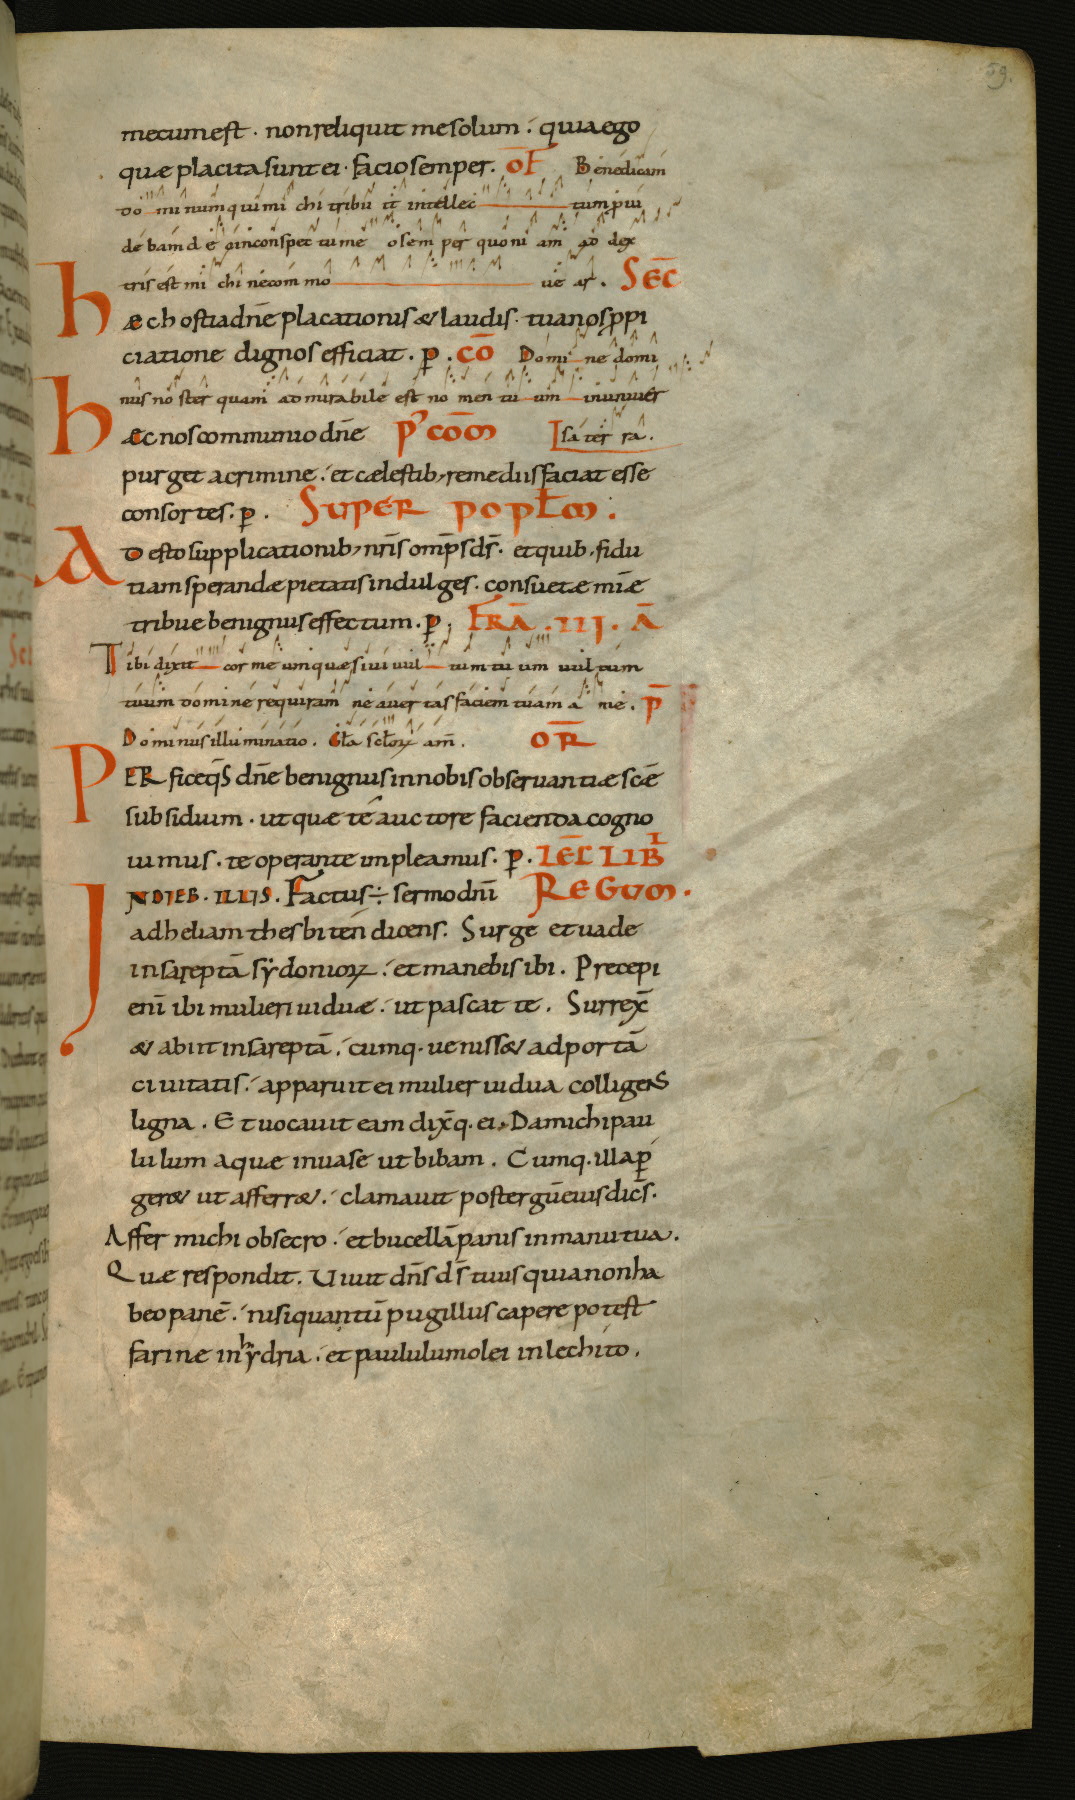 59.
mecum est · non reliquit me solum : quia ego
quæ placita sunt ei · facio semper. OF Benedicam
dominum qui mi chi tribu it intellec tum p ui
debam deū in conspectu me o semper quoniam ad dex
tris est mi chi ne com mo ue ar. SEC̄
Hæc hostia dn̄e placationis & laudis · tua nos ꝓpi
ciatione dignos efficiat . p . CŌ Domine domi
nus noster quam admirabile est nomen tuum in uniuer
Hæc nos communio dn̄e P' COM̄ sa ter ra.
purget a crimine : et cælestib; remediis faciat esse
consortes. p . SUPER POPL̄M .
Adesto supplicationib; nr̄is omp̄s ds̄ · et quib; fidu
tiam sperandæ pietatis indulges . consuetæ mīæ
tribue benignus effectum . p . FR̄A . III . Ā
Tibi dixit cor meum quæsiui uul tum tuum uultum
tuum domine requiram ne auertas faciem tuam a me . P̄
Dominus illuminatio . Gl̄a sc̄lor̄ am̄ . OR̄
PERfice qs̄ dn̄e benignus in nobis obseruantiæ sc̄æ
subsidium . ut quæ te auctore facienda cogno
uimus . te operante impleamus . p . LEC̄ LIB̄ I
INDIEB . ILLIS . Factus ÷ sermo dn̄i REGUM .
ad heliam thesbiten dicens . Surge et uade
in sareptā sydonior̄ : et manebis ibi . Precepi
enī ibi mulieri uiduæ : ut pascat te . Surrex̄
& abiit in sareptā : cumq . uenisset ad portā
ciuitatis : apparuit ei mulier uidua colligens
ligna . Et uocauit eam dix̄q . ei . Da michi pau
lulum aquæ in uase ut bibam . Cumq . illa p̄
ger& ut afferr& : clamauit post ergūm eius dic̄s .
Affer michi obsecro : et bucellā panis in manu tua .
Quæ respondit . Uiuit dn̄s ds̄ tuus quia non ha
beo panē : nisi quantū pugillus capere potest
farinæ in hydria : et paululum olei in lechito .